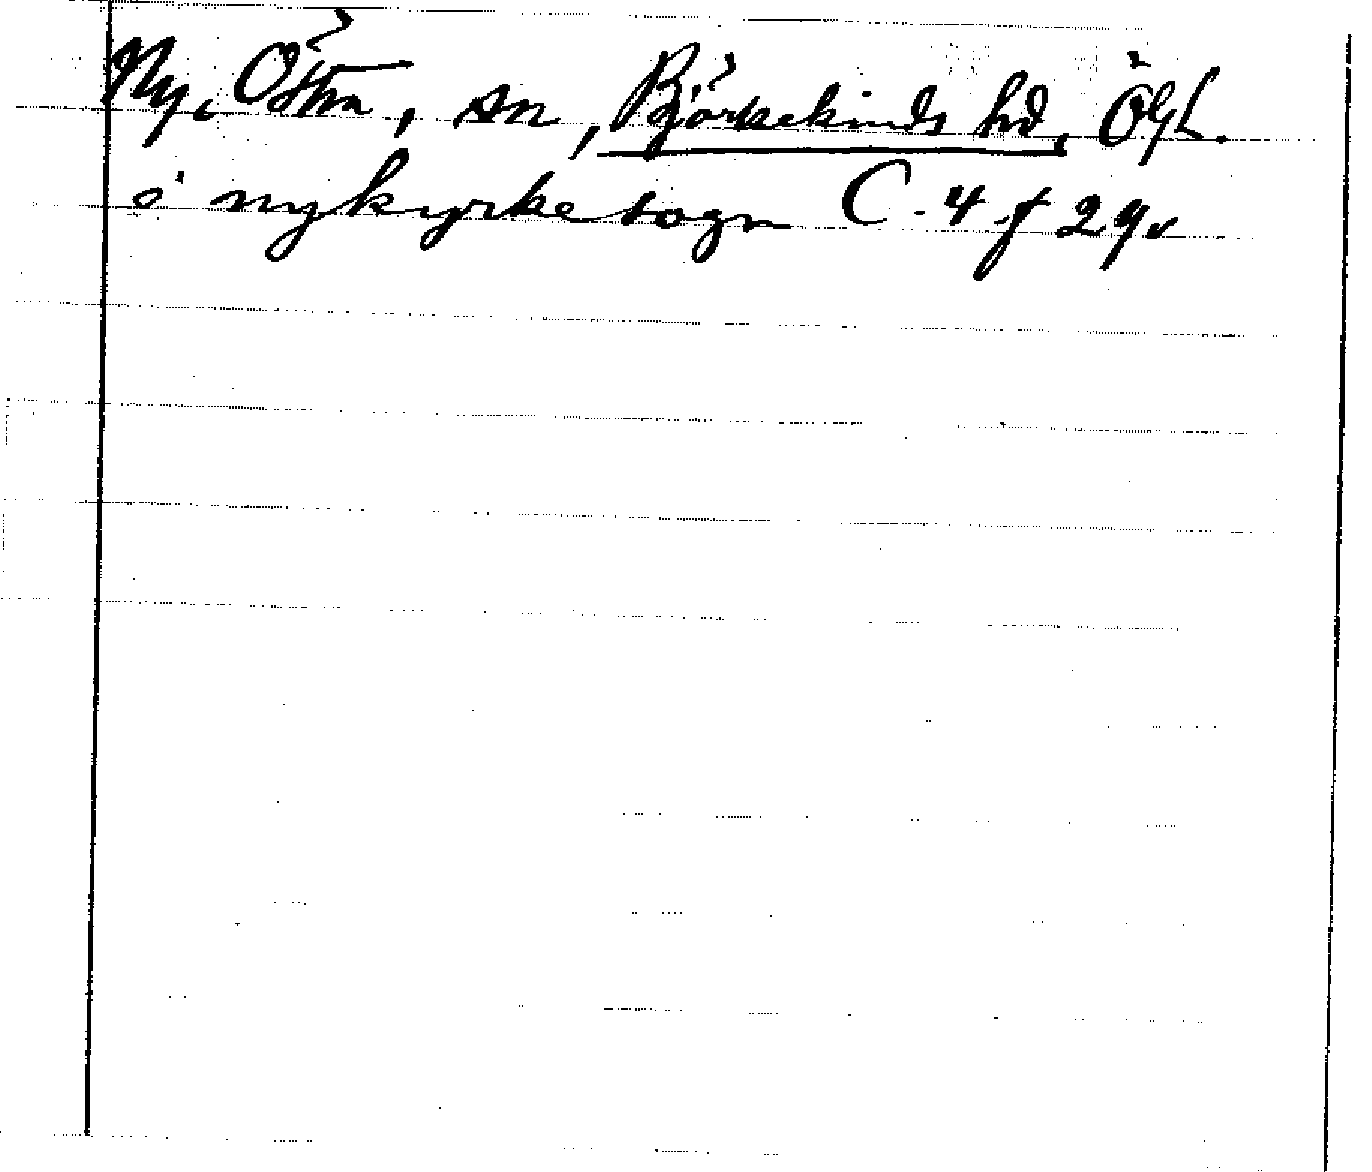 Ny, Östra, sn, Björkekinds hd, Ögl.
i nykyrke sogn C 4 f 29v